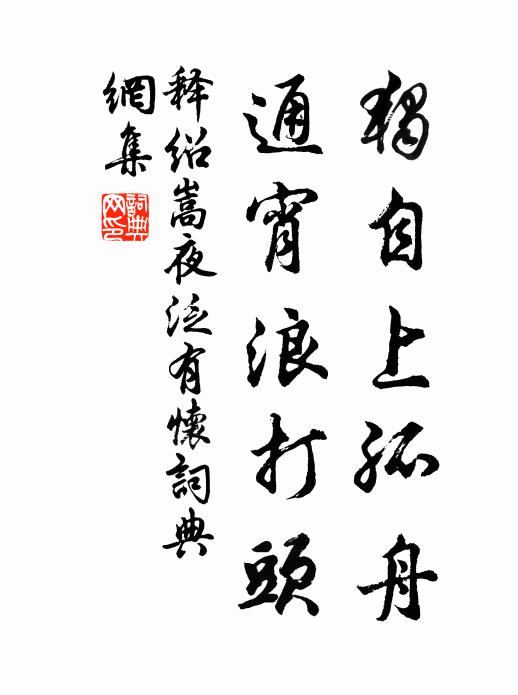 獨自上孤舟
通宵浪打頭
释绍嵩夜泛有懷詞典
網集
詞典
网印